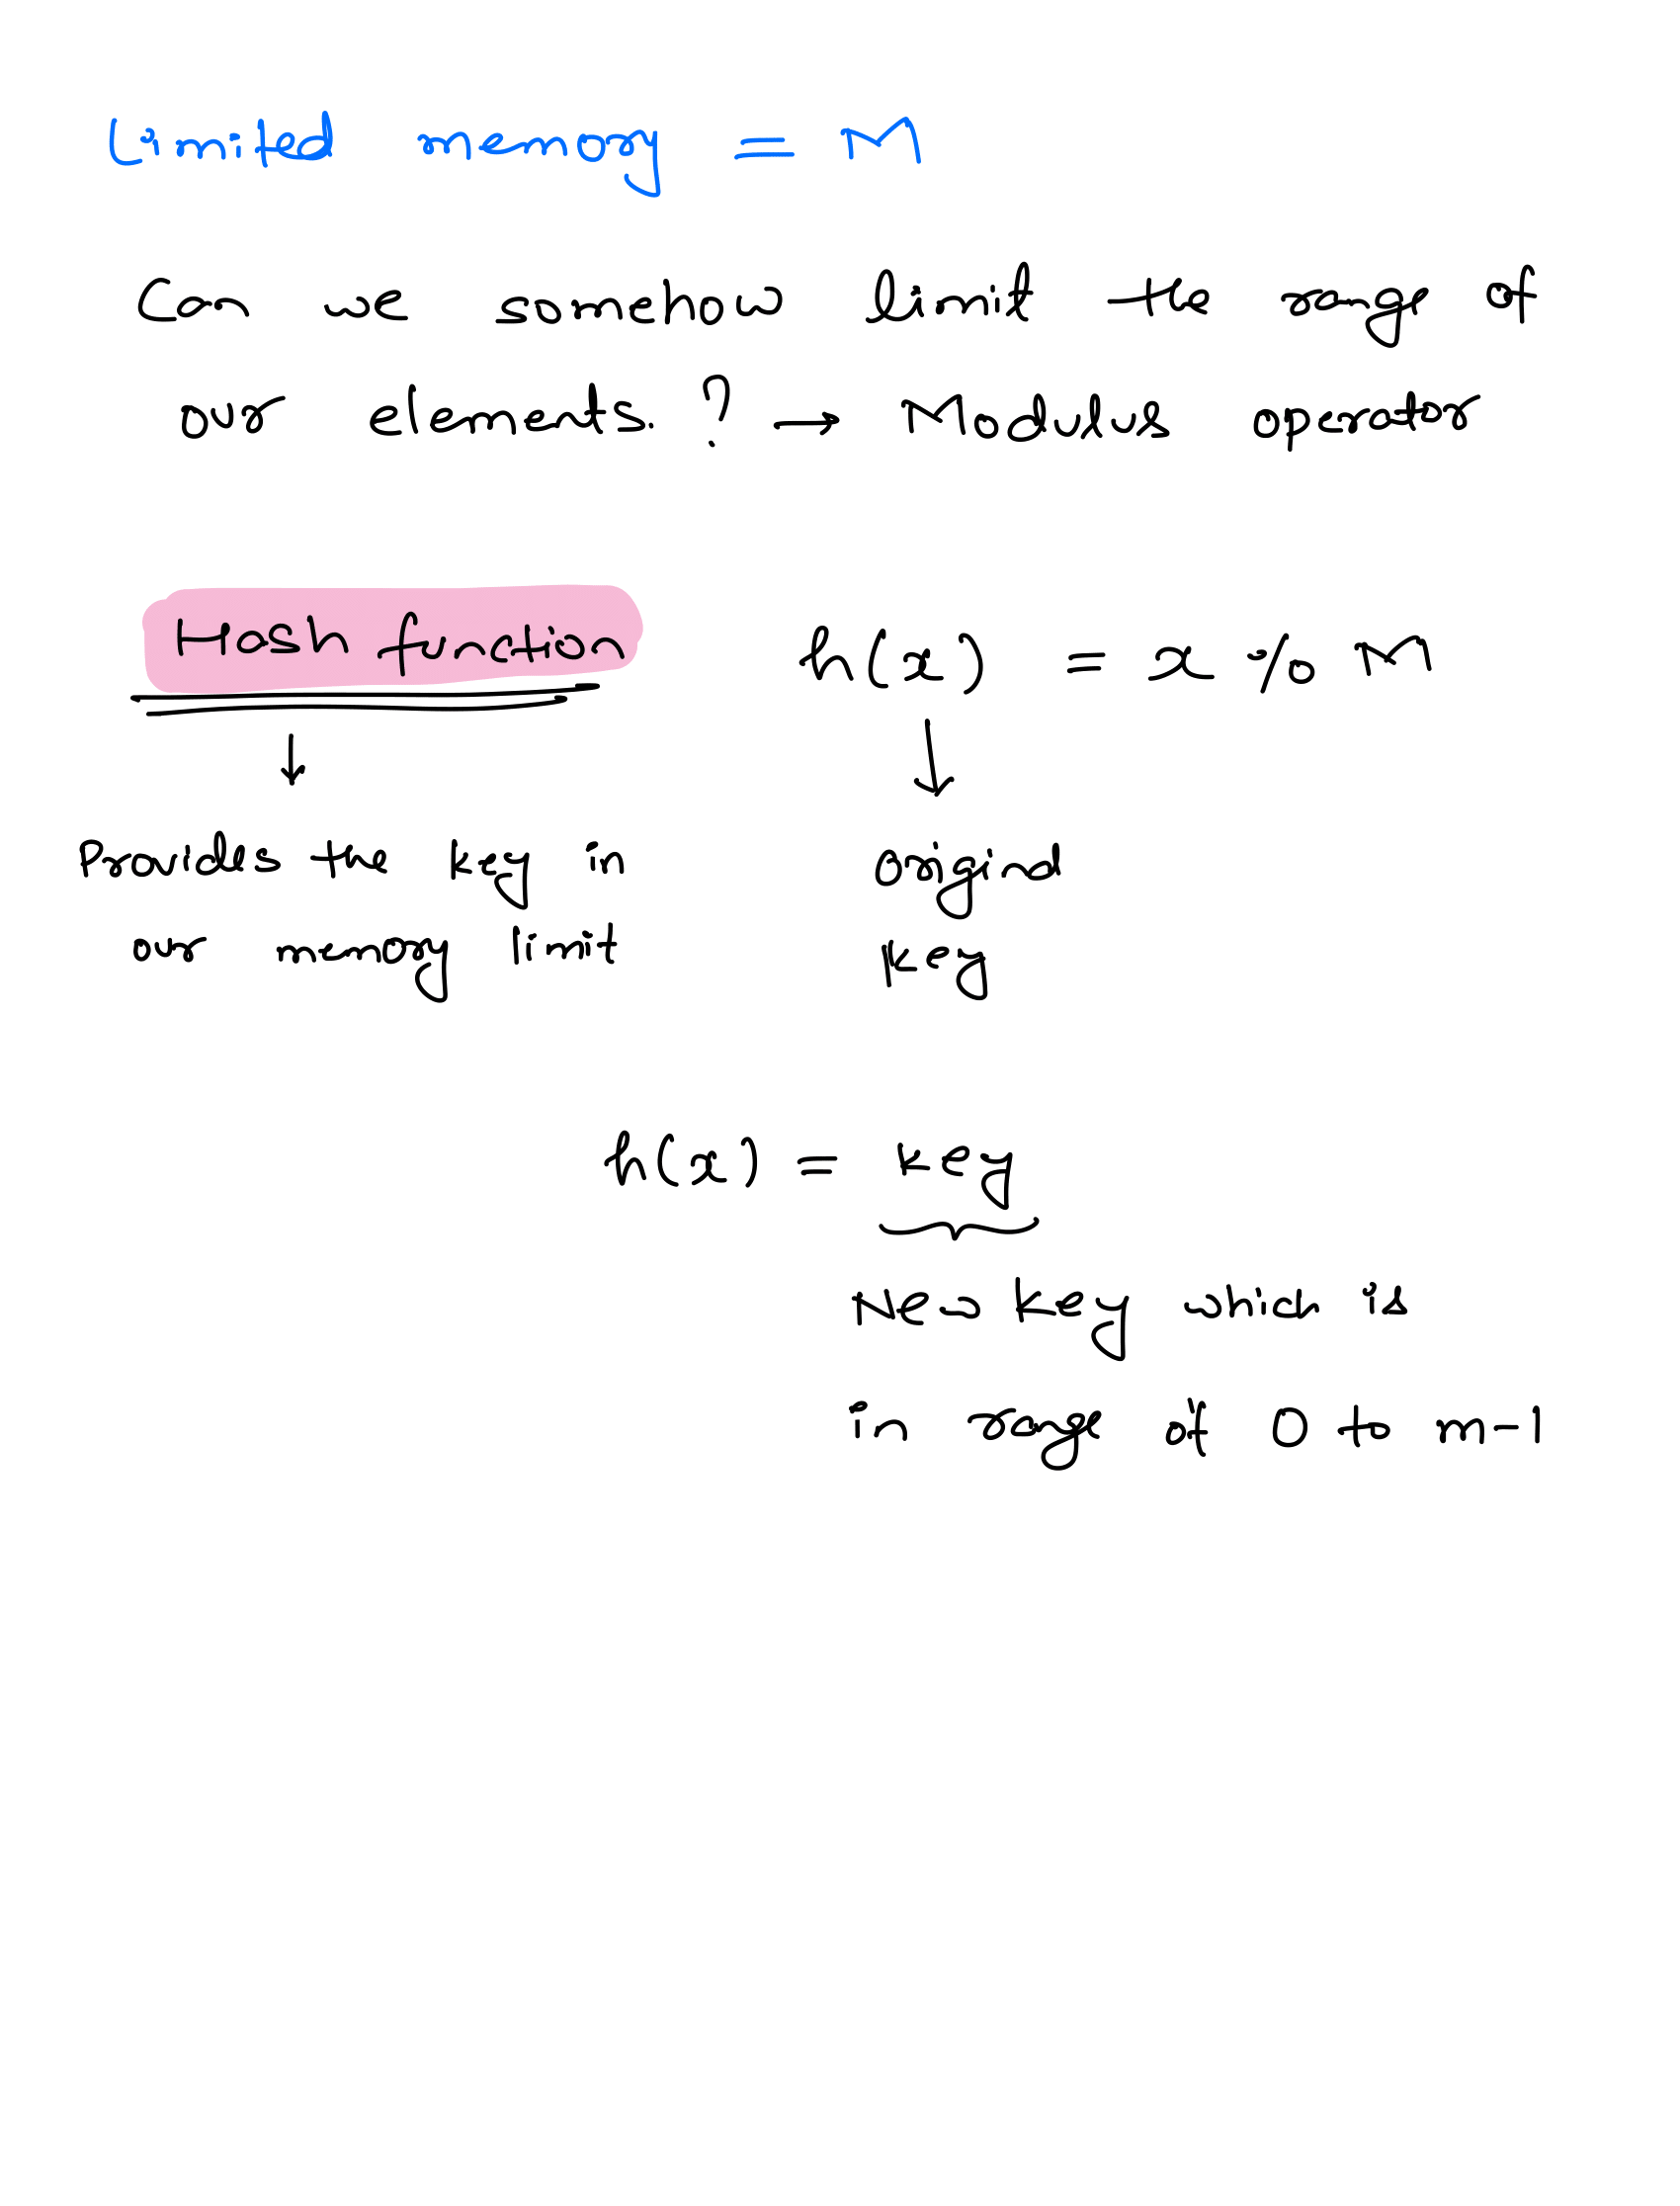 Limited memory = M
Can we somehow limit the range of
our elements. ? → Modulus operator
Hash function
h(x) = x % M
↓
↓
Provides the key in
our memory limit
original
key
h(x) = key
New key which is
in range of 0 to m-1